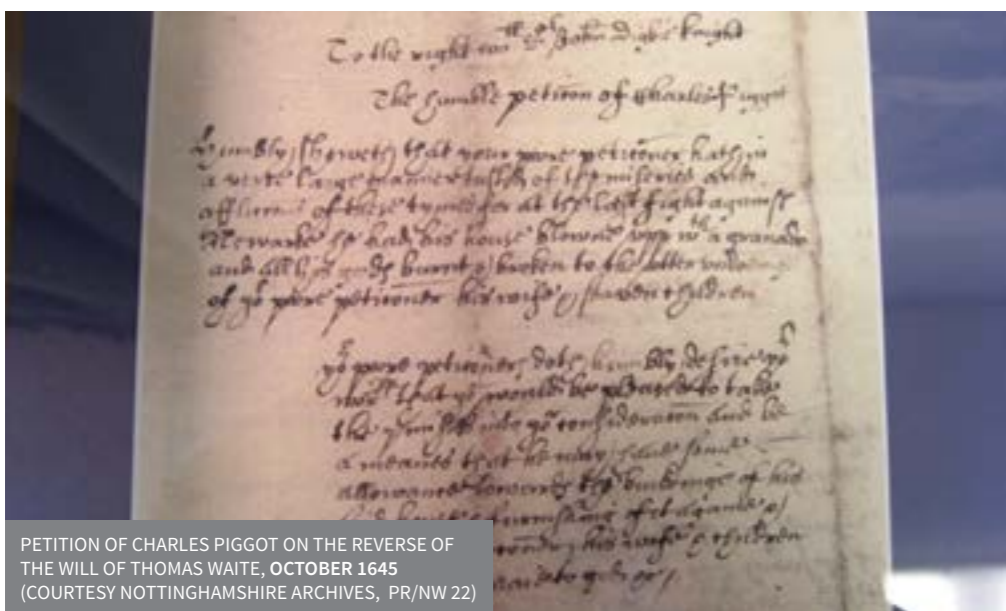 To the right wor:ll Sr John digbie knight
The humble petic̃on of Charles Piggot
Humbly sheweth that your poore petic̃oner hath in
a verie large manner tasted of the miseries and
afflicc̃ons of these tymes for at the last fight against
Newarke he had his house blowne upp wth a granado
and all his goods burnt & broken to the utter undoing
of yor poore petic̃oner his wife & seaven children
yor poore petic̃oner doth humbly desire yor
worpp that yo would be pleased to take
the p̃misses into yor considerac̃on and be
a meanes that he may have some
allowance towards the buildinge of his
said house
his wife & children
PETITION OF CHARLES PIGGOT ON THE REVERSE OF
THE WILL OF THOMAS WAITE, OCTOBER 1645
(COURTESY NOTTINGHAMSHIRE ARCHIVES, PR/NW 22)